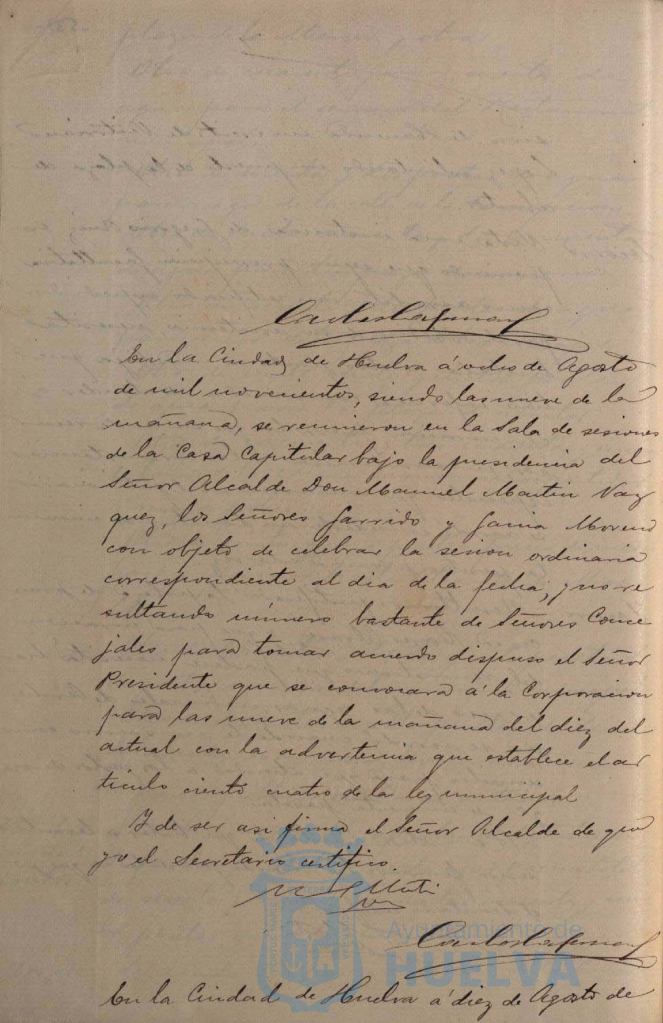 En la Ciudad de Huelva á ocho de Agosto
de mil novecientos, siendo las nueve de la
mañana, se reunieron en la Sala de sesiones
de la Casa Capitular bajo la presidencia del
Señor Alcalde Don Manuel Martin Vaz
quez, los Señores Garrido y Moreno
con objeto de celebrar la sesion ordinaria
correspondiente al dia de la fecha; y no re
sultando número bastante de Señores Conce
jales para tomar acuerdo dispuso el Señor
Presidente que se convocara á la Corporacion
para las nueve de la mañana del diez del
actual con la advertencia que establece el ar
tículo ciento cuatro de la ley municipal
Y de ser asi firma el Señor Alcalde de que
yo el Secretario certifico.
Ayuntamiento de
HUELVA
En la Ciudad de Huelva á diez de Agosto de